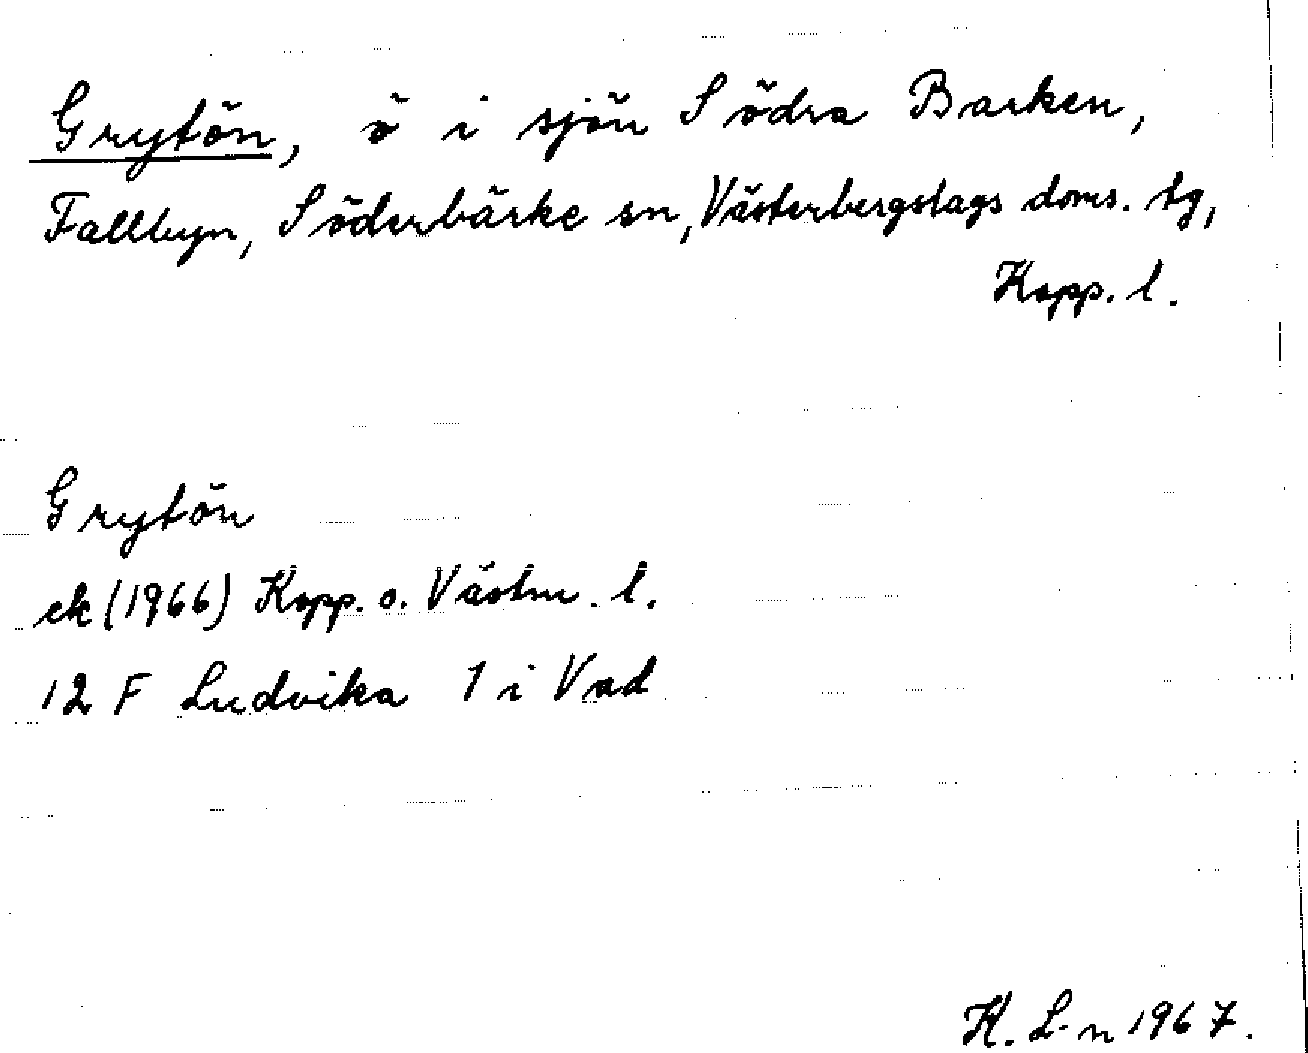 Grytön, ö i sjön Södra Barken,
Fallbyn, Söderbärke sn, Västerbergslags doms. tg,
Kopp. l.
Grytön
ek (1966) Kopp. o. Västm. l.
12 F Ludvika 1 i Vad
K. L-n 1967.